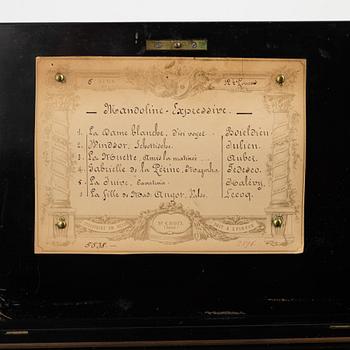 6 AIRS
— Mandoline - Expressive. —
1. La Dame blanche, D'ici voyez Boieldieu
2. Windsor, Schottische. Julien.
3. La Muette, Amis la matinée Auber.
4. Gabrielle de la Périne, Mazurka Tedesco.
5. La Juive, Cavatine Halévy.
6. La Fille de Mad. Angot, Valse. Lecocq.
Ste CROIX
5538.—